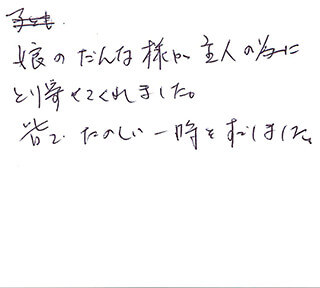 子ども
娘のだんな様が主人の為に
とり寄せてくれました。
皆で、たのしい一時をすごしました。